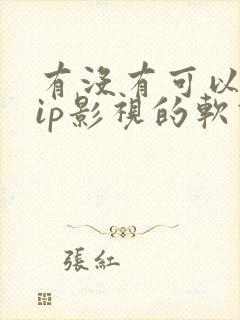 有没有可以
ip影視的軟
張紅